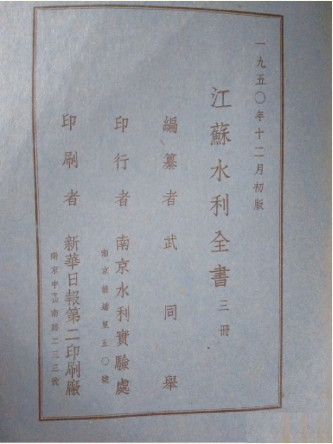 一九五〇年十二月初版
江蘇水利全書 三冊
編纂者 武同舉
印行者 南京水利實驗處
印刷者 新華日報第二印刷廠